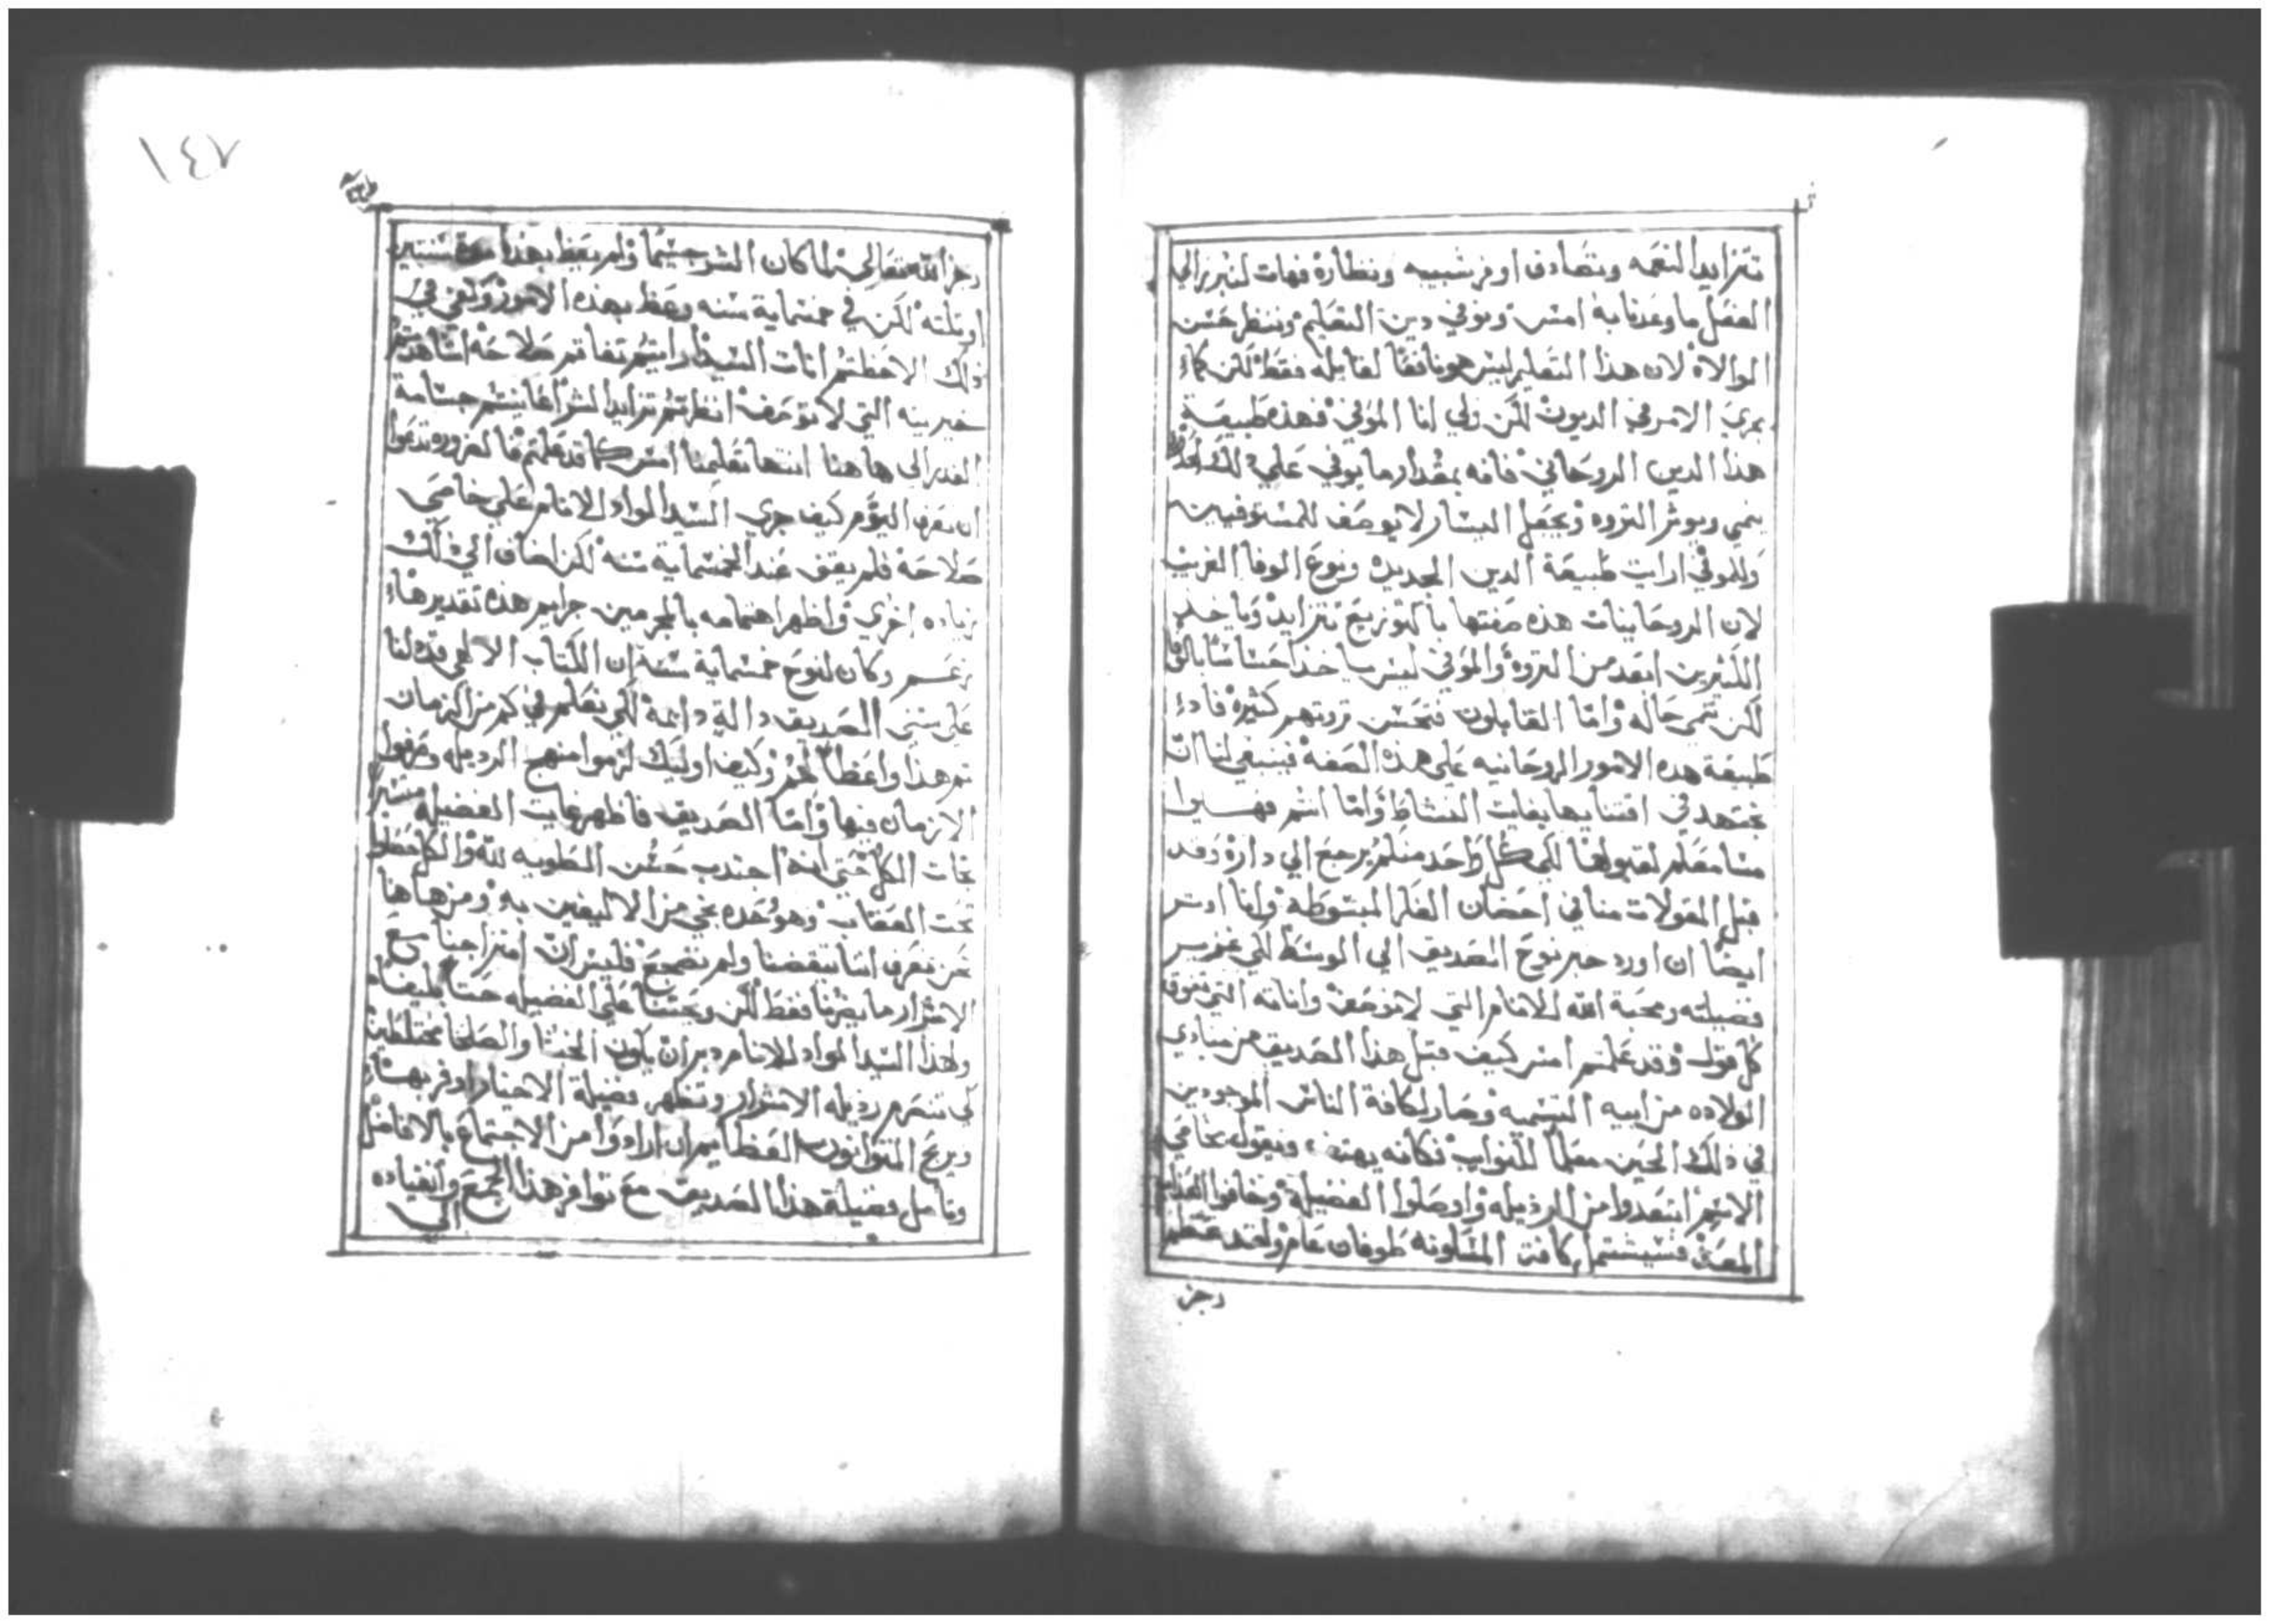 تتزايد النعمه وتصادف اوفر شبيبه ونظارة فهات لنبرز الي
الفعل ما وعدنا به امس ونوفي دين التعليم وننظر حسن
الموالاة لان هذا التعليم ليس هو نافعًا لقابله فقط لكن كما
يجري الامر في الديون لكن ولي انا الموفي فهذه طبيعة
هذا الدين الروحاني فانه بمقدار ما يوفي علي ذلك
ينمي ويوثر الثروه ويجعل اليسار لا يوصف للمستوفيين
وللموفي ارايت طبيعة الدين الجديده ونوع الوفا الغريب
لان الروحانيات هذه صفتها بالتوزيع تتزايد وياخذ
الكثيرين ابعد من الثروة والموفي ليس ياخذ احساسًا
لكن تنمي حاله واما القابلون فتحسن ثروتهم كثيرة فاذ
طبيعة هذه الامور الروحانيه علي هذه الصفة فينبغي لنا ان
نجتهد في اقتنايها بغايت النشاط واما انتم فهـ
مسامعكم لقبولها لكي كل واحد منكم يرجع الي داره وقد
قبل المقولات منا في احضان الفكر المبسوطة وانا
ايضًا ان اورد خبر نوح الصديق الي الوسط لكي
فضيلته ومحبة الله للانام التي لا توصف واناته التي تفوق
كل قول وقد علمتم امس كيف قبل هذا الصديق من مبادي
الولاده من ابيه التسميه وصار لكافة الناس الموجودين
في ذلك الحين معلمًا للنوايب فكانه يهتف ويقول
الاثم ابتعدوا من الرذيله واوصلوا الفضيلة وخافوا العذاب
المعد فسيشتمل كافت المسكونه طوفان عام ولقد عظم
رجز
رجز الله تعالي لما كان الشر جسيمًا ولم يعظ بهذا سنتين
او ثلثه لكن في خمسماية سنه وعظ بهذه الامور
ذلك الاحظتم انات السيد ارايتم تفاقم صلاحه اشاهدتم
خيريته التي لا توصف انظرتم تزايد الشر اعاينتم جسامة
الغدر الي هاهنا انتها تعليمنا امس كما قد علمتم فالضروره تدعوا
ان نعرف اليوم كيف جري السيد المواد للانام علي خاصي
صلاحه فلم يقف عند الخمسماية سنه لكن اضاف الي ذلك
زياده اخري واظهر اهتمامه بالمجرمين جرايم هذه تقديرها
زعم وكان لنوح خمسماية سنة ان الكتاب الالهي قد
علي سني الصديق دالة دايمة لكي نعلم في كم من الزمان
تم هذا واعظًا لهم وكيف اوليك لزموا منهج الرذيله وصرفوا
الازمان فيها واما الصديق فاظهر غايت الفضيله
نجات الكل حتي انه اجتذب حسن الطويه لله والكل حصلوا
تحت العقاب وهو وحده نجي من الاليفين به ومن هاهنا
نحن نعرف اننا تيقضنا ولم نضجع فليس ان امتزاجنا مع
الاشرار ما يضرنا فقط لكن ويحسننا علي الفضيله حسنًا بليغًا
ولهذا السيد المواد للانام دبر ان يكون الخبثا والصلحا مختلطين
لكي تنصرم رذيله الاشرار وتظهر فضيلة الاخيار اوفر بهـا
ويربح المتوانون العظايم ان ارادوا من الاجتماع بالافاضل
وتامل فضيلة هذا الصديق مع توافر هذا الجمع وانقياده
الي
١٤٧